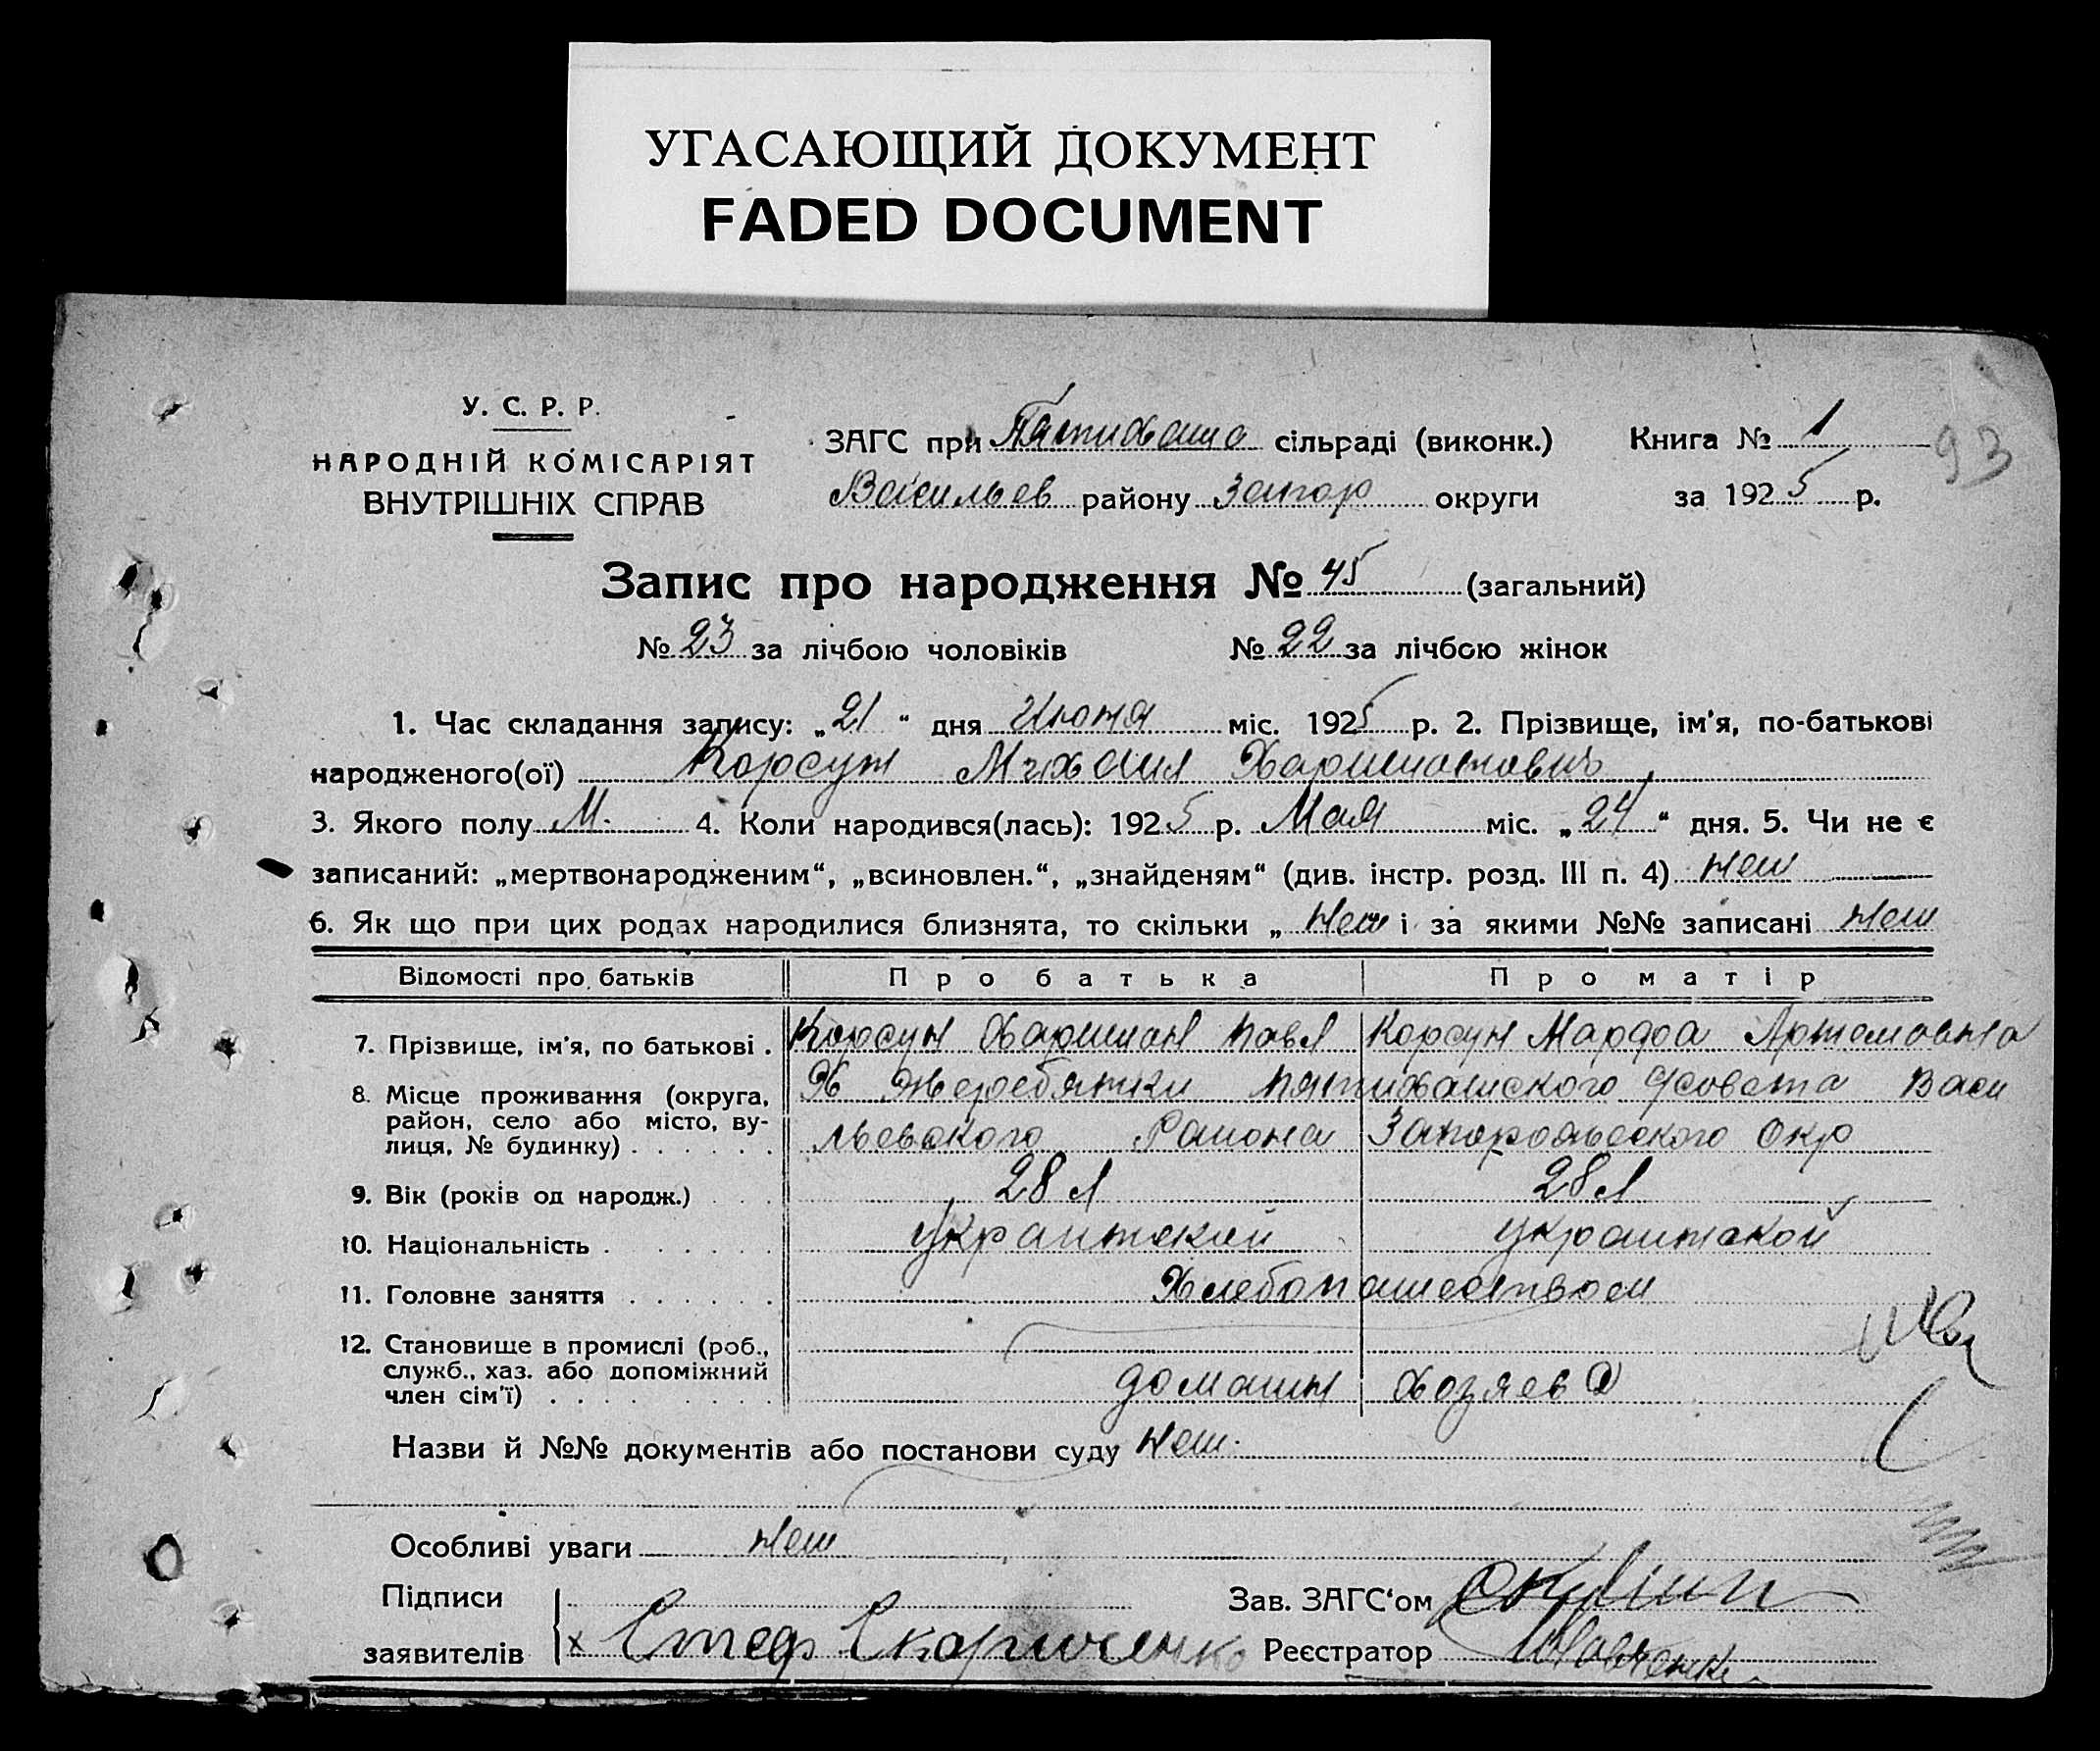 УГАСАЮЩИЙ ДОКУМЕНТ
FADED DOCUMENT
У. С. Р. Р.
НАРОДНІЙ КОМІСАРІЯТ
ВНУТРІШНІХ СПРАВ
ЗАГС при Пятихатко сільраді (виконк.)
Васильев району Запор округи
Книга № 1
за 1925 р.
93
Запис про народження № 45 (загальний)
№ 23 за лічбою чоловіків № 22 за лічбою жінок
1. Час складання запису: „21“ дня Июня міс. 1925 р. 2. Прізвище, ім'я, по-батькові
народженого(ої) Корсун Михаил Харитонович
3. Якого полу М. 4. Коли народився(лась): 1925 р. Мая міс. „24“ дня. 5. Чи не є
записаний: „мертвонародженим“, „всиновлен.“, „знайденям“ (див. інстр. розд. III п. 4) нет
6. Як що при цих родах народилися близнята, то скільки „ нет і за якими №№ записані нет
Відомості про батьків Про батька Про матір
7. Прізвище, ім'я, по батькові . Корсун Харитон Павл Корсун Марфа Артемовна
8. Місце проживання (округа, район, село або місто, вулиця, № будинку) Х Жеребятки Пятихатского Ссовета Васи
льевского Района Запорожского Окр
9. Вік (років од народж.) 28 л 28 л
10. Національність украинский украинской
11. Головне заняття Хлебопашеством
12. Становище в промислі (роб., служб., хаз. або допоміжний член сім'ї)
домашн Хозяев
Назви й №№ документів або постанови суду нет.
Особливі уваги нет
Підписи
заявителів х Стеф
Зав. ЗАГС‘ом
Реєстратор